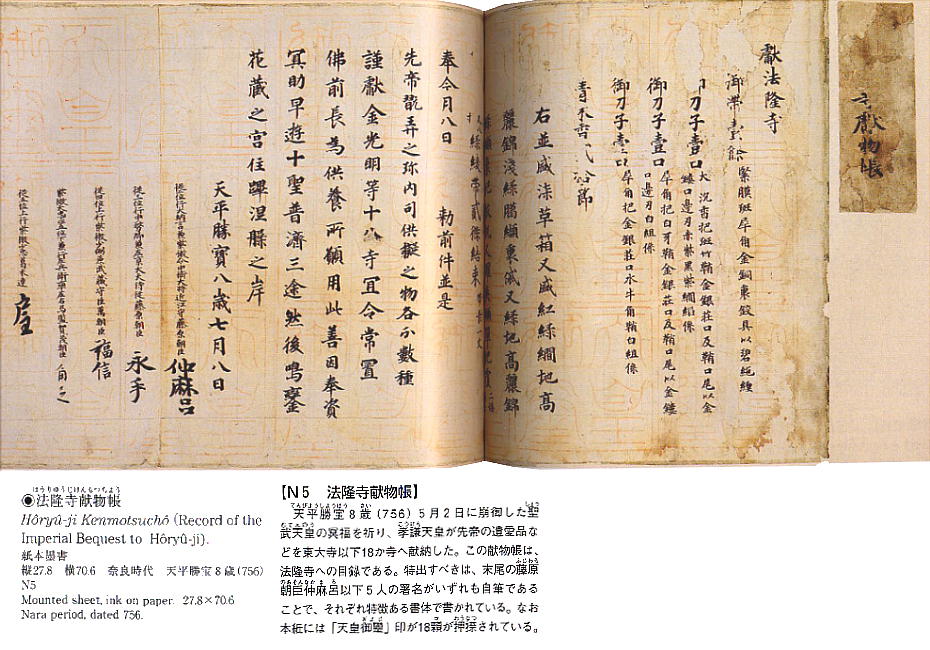 獻物帳
獻法隆寺
御帶壹條 斑犀角金銅裏鉸具以碧絁纏
刀子壹口 大沉香把斑竹鞘金銀莊口及鞘口尾以金
鏤口邊刃赤紫黑紫繝組係
御刀子壹口 犀角把白牙鞘金銀莊口及鞘口尾以金鏤
口邊刃白組係
御刀子壹口 犀角把金銀莊口水牛角鞘白組係
青木香 節
右並盛漆草箱又盛紅綠繝地高
麗錦淺綠﨟纈裏俗又綠地高麗錦
綠綾帶貳條結束
奉今月八日 勅前件並是
先帝翫弄之珎内司供擬之物各分數種
謹獻金光明等十八寺宜令常置
佛前長為供養所願用此善因奉資
冥助早遊十聖普濟三途然後鳴鑾
花藏之宮住蹕涅槃之岸
天平勝寶八歳七月八日
從二位行大納言兼紫微令中衛大將近江守藤原朝臣 仲麻呂
藤原朝臣 永手
紫微少弼兼武藏守巨萬朝臣 福信
賀茂朝臣 角足
從五位上行紫微少忠葛木連 戸主
ほうりゅうじけんもつちょう
◉法隆寺献物帳
Hôryû-ji Kenmotsuchô (Record of the
Imperial Bequest to Hôryû-ji).
紙本墨書
縦27.8 横70.6 奈良時代 天平勝宝8歳(756)
N5
Mounted sheet, ink on paper. 27.8×70.6
Nara period, dated 756.
【N5 法隆寺献物帳】
天平勝宝8歳(756)5月2日に崩御した聖
武天皇の冥福を祈り、孝謙天皇が先帝の遺愛品な
どを東大寺以下18か寺へ献納した。この献物帳は、
法隆寺への目録である。特出すべきは、末尾の藤原
朝臣仲麻呂以下5人の署名がいずれも自筆である
ことで、それぞれ特徴ある書体で書かれている。なお
本紙には「天皇御璽」印が18顆が押捺されている。